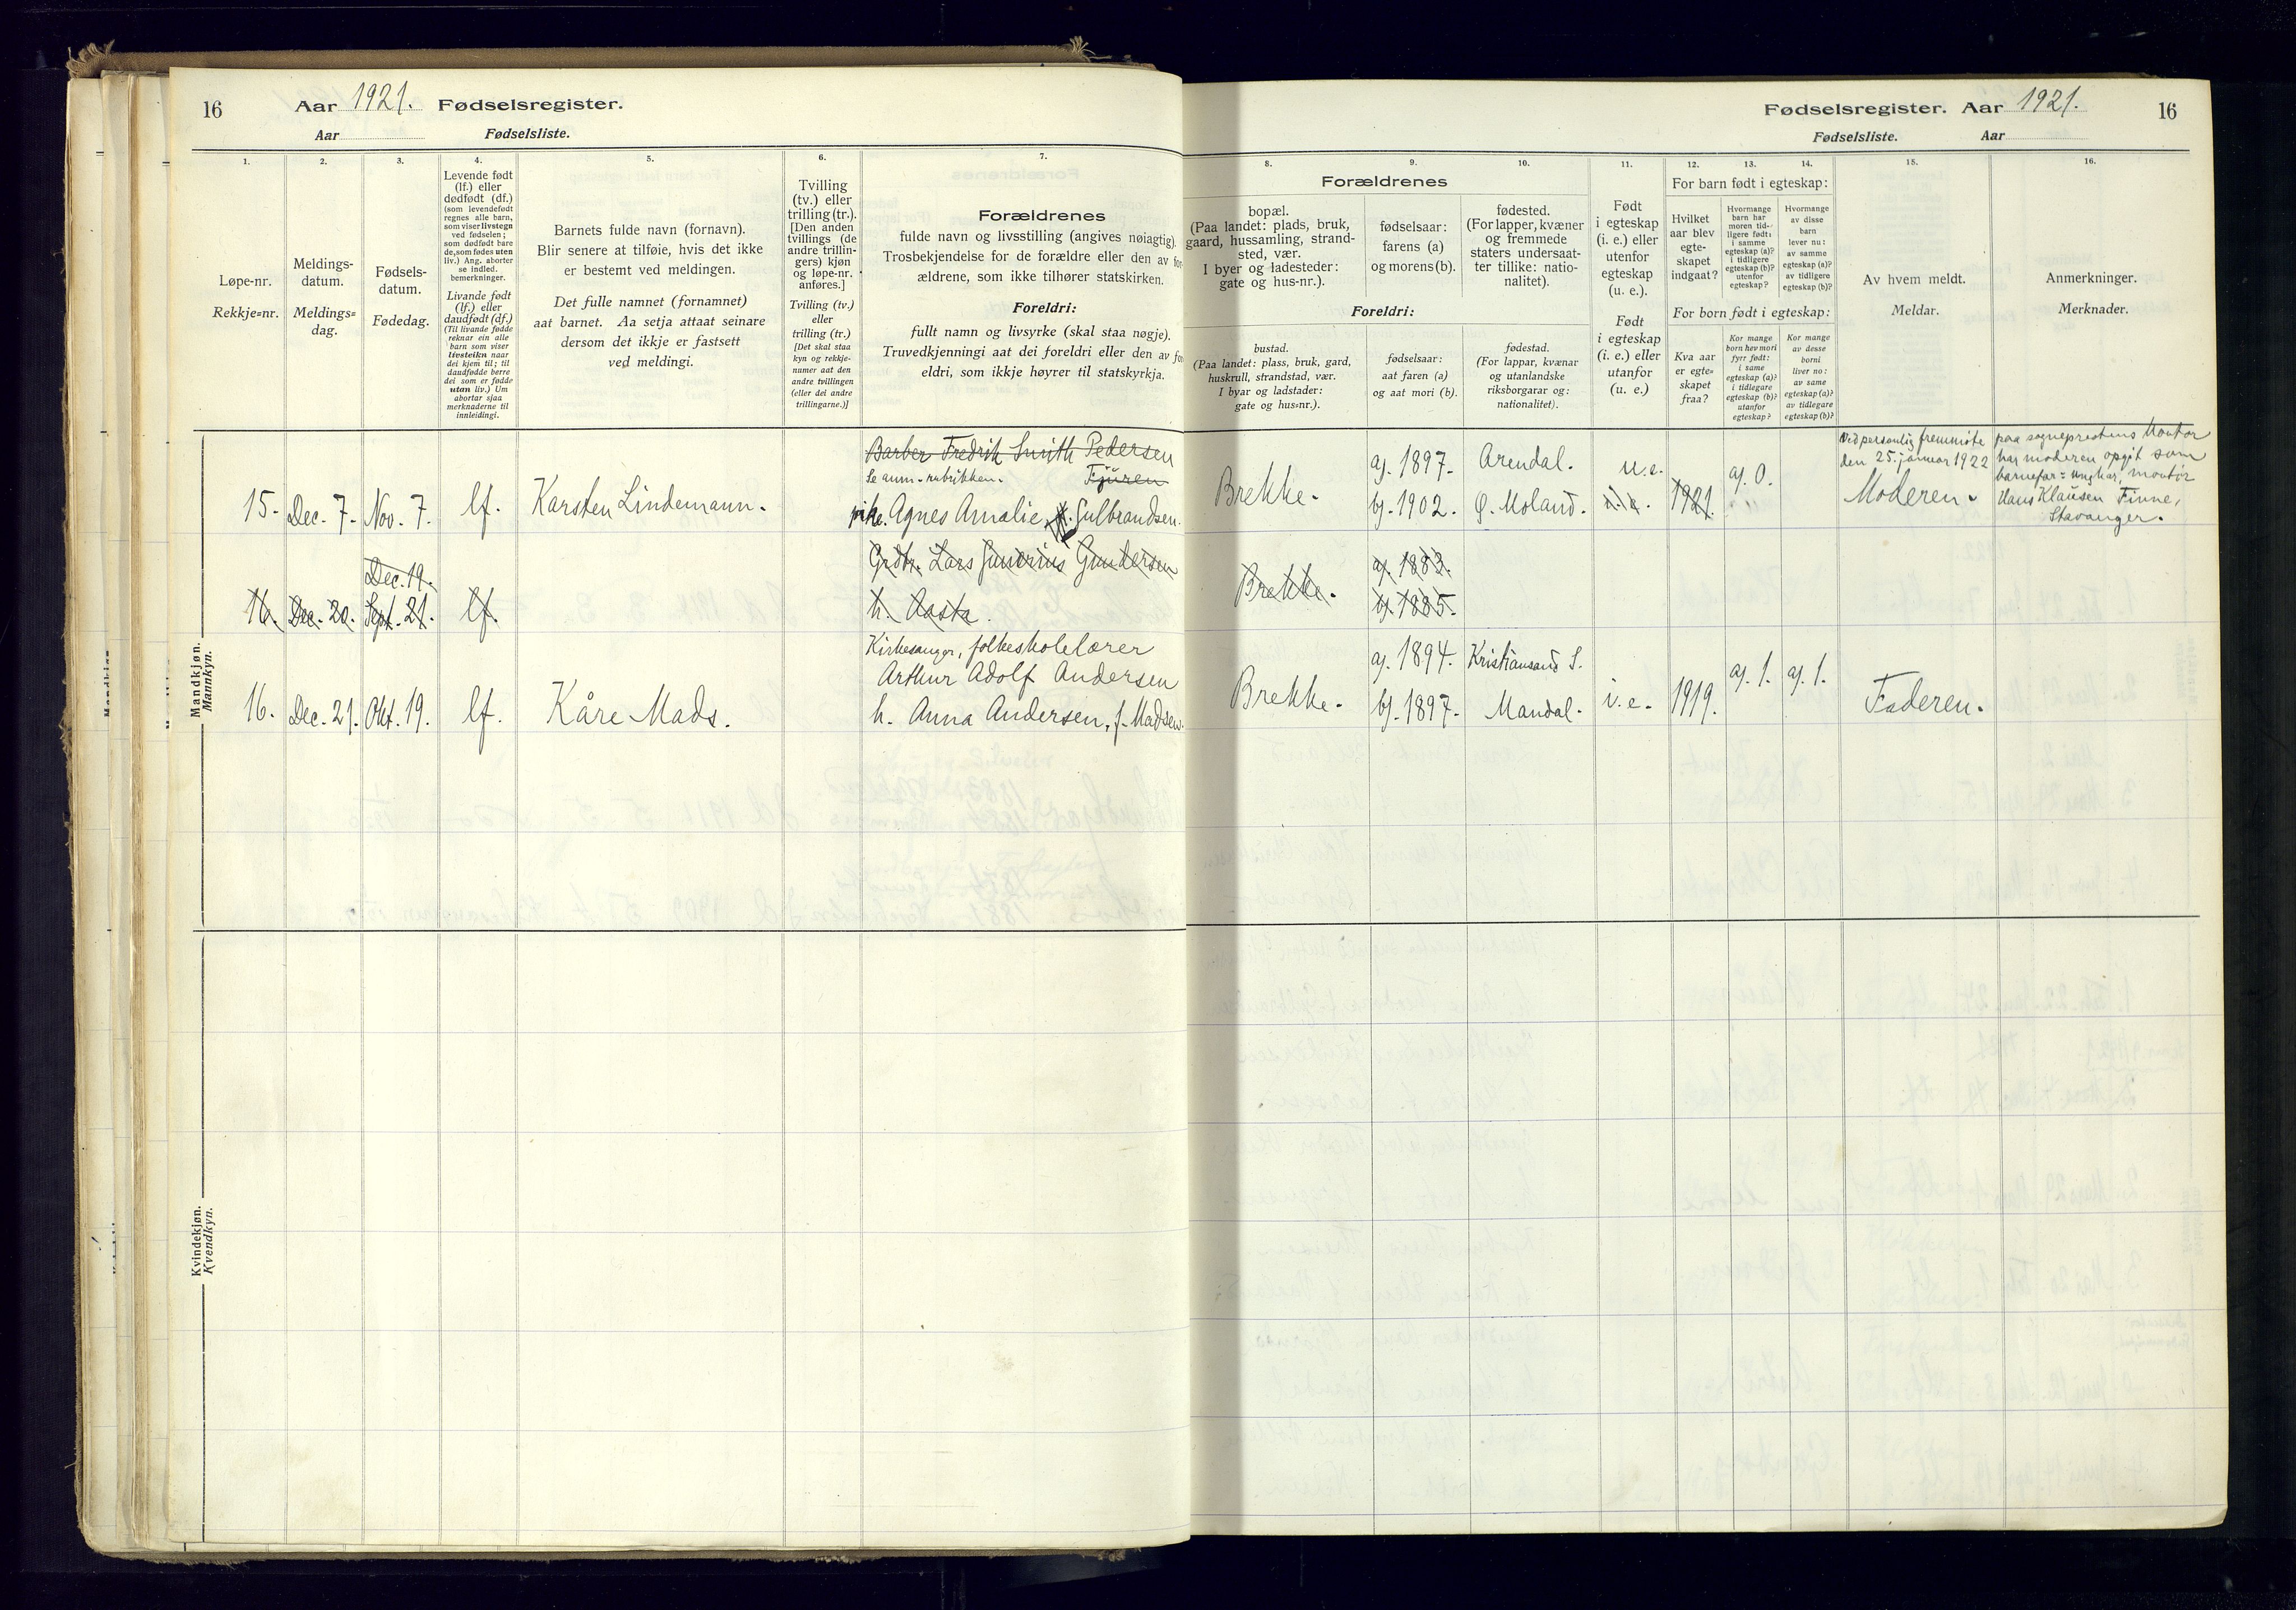 16
Aar 1921. Fødselsregister.
Aar
Fødselsliste.
Fødselsregister. Aar 1921.
16
Fødselsliste.
Aar
1.
Løpe-nr.
Rekkje=nr.
2.
Meldings-
datum.
Meldings=
dag.
3.
Fødsels-
datum.
Fødedag.
4.
Levende født
(lf.) eller
dødfødt (df.)
(som levendefødt
regnes alle barn,
som viser livstegn
ved fødselen;
som dødfødt bare
de, som fødes uten
liv.) Ang. aborter
se indled.
bemerkninger.
Livande født
(lf.) eller
daudfødt (df.)
(Til livande fødde
reknar ein alle
barn som viser
livsteikn naar
dei kjem til; til
daudfødde berre
dei som er fødde
utan liv.) Um
abortar sjaa
merknaderne til
innleidingi.
5.
Barnets fulde navn (fornavn).
Blir senere at tilføie, hvis det ikke
er bestemt ved meldingen.
Det fulle namnet (fornamnet)
aat barnet. Aa setja attaat seinare
dersom det ikkje er fastsett
ved meldingi.
6.
Tvilling
(tv.) eller
trilling (tr.).
[Den anden
tvillings (de
andre trillin-
gers) kjøn
og løpe-nr.
anføres.]
Tvilling (tv.)
eller
trilling (tr.)
[Det skal staa
kyn og rekkje-
numer aat den
andre tvillingen
(eller dei andre
trillingarne.)]
7.
Forældrenes
fulde navn og livsstilling (angives nøiagtig).
Trosbekjendelse for de forældre eller den av for-
ældrene, som ikke tilhører statskirken.
Foreldri:
fullt namn og livsyrke (skal staa nøgje).
Truvedkjenningi aat dei foreldri eller den av for-
eldri, som ikkje høyrer til statskyrkja.
8.
Forældrenes
bopæl.
(Paa landet: plads, bruk,
gaard, hussamling, strand-
sted, vær.
I byer og ladesteder:
gate og hus-nr.).
Foreldri:
bustad.
(Paa landet: plass, bruk, gard,
huskrull, strandstad, vær.
I byar og ladstader:
gate og hus=nr.).
9.
fødselsaar:
farens (a)
og morens (b).
fødselsaar:
aat faren (a)
og aat mori (b).
10.
fødested.
(For lapper, kvæner
og fremmede
staters undersaat-
ter tillike: natio-
nalitet).
fødestad.
(For lappar, kvænar
og utanlandske
riksborgarar og:
nationalitet).
11.
Født
i egteskap
(i. e.) eller
utenfor
egteskap
(u. e.).
Født
i egteskap
(i. e.) eller
utanfor
(u. e.)
12.
For barn født i egteskap:
Hvilket
aar blev
egte-
skapet
indgaat?
For born født i egteskap:
Kva aar
er egte=
skapet
fraa?
13.
Hvormange
barn har
moren tid-
ligere født:
i samme
egteskap (a)?
i tidligere
egteskap (b)?
utenfor
egteskap?
Kor mange
born hev mori
fyrr født:
i same
egteskap (a)?
i tidlegare
egteskap (b)?
utanfor
egteskap?
14.
Hvormange
av disse
barn
lever nu:
av samme
egteskap (a)?
av tidligere
egteskap (b)?
Kor mange
av desse
borni
liver no:
av same
egteskap (a)?
av tidlegare
egteskap (b)?
15.
Av hvem meldt.
Meldar.
16.
Anmerkninger.
Merknader.
Mandkjøn.
Mannkyn.
15. Dec. 7. Nov. 7. lf. Karsten Lindemann.
Barber Fredrik Smith Pedersen
Se anm.-rubrikken.
pike. Agnes Amalie Gulbrandsen.
Brekke.
a). 1897.
b). 1902.
Arendal.
Ø. Moland.
u.e.
1921.
a). 0.
Ved personlig fremmøte
den 25. januar 1922
Moderen.
paa sogneprestens kontor
har moderen opgit som
barnefar: ungkar, montør
Hans Klausen Finne,
Stavanger.
Dec. 19.
16. Dec. 20. Sept. 21. lf.
Lars Gundersen
h. Aasta.
Brekke.
a). 1883.
b). 1885.
16. Dec. 21. Okt. 19. lf. Kåre Mads.
Kirkesanger, folkeskolelærer
Arthur Adolf Andersen
h. Anna Andersen, f. Madsen.
Brekke.
a). 1894.
b). 1897.
Kristiansand S.
Mandal.
i.e. 1919.
a). 1. a). 1.
Faderen.
Kvindekjøn.
Kvendkyn.